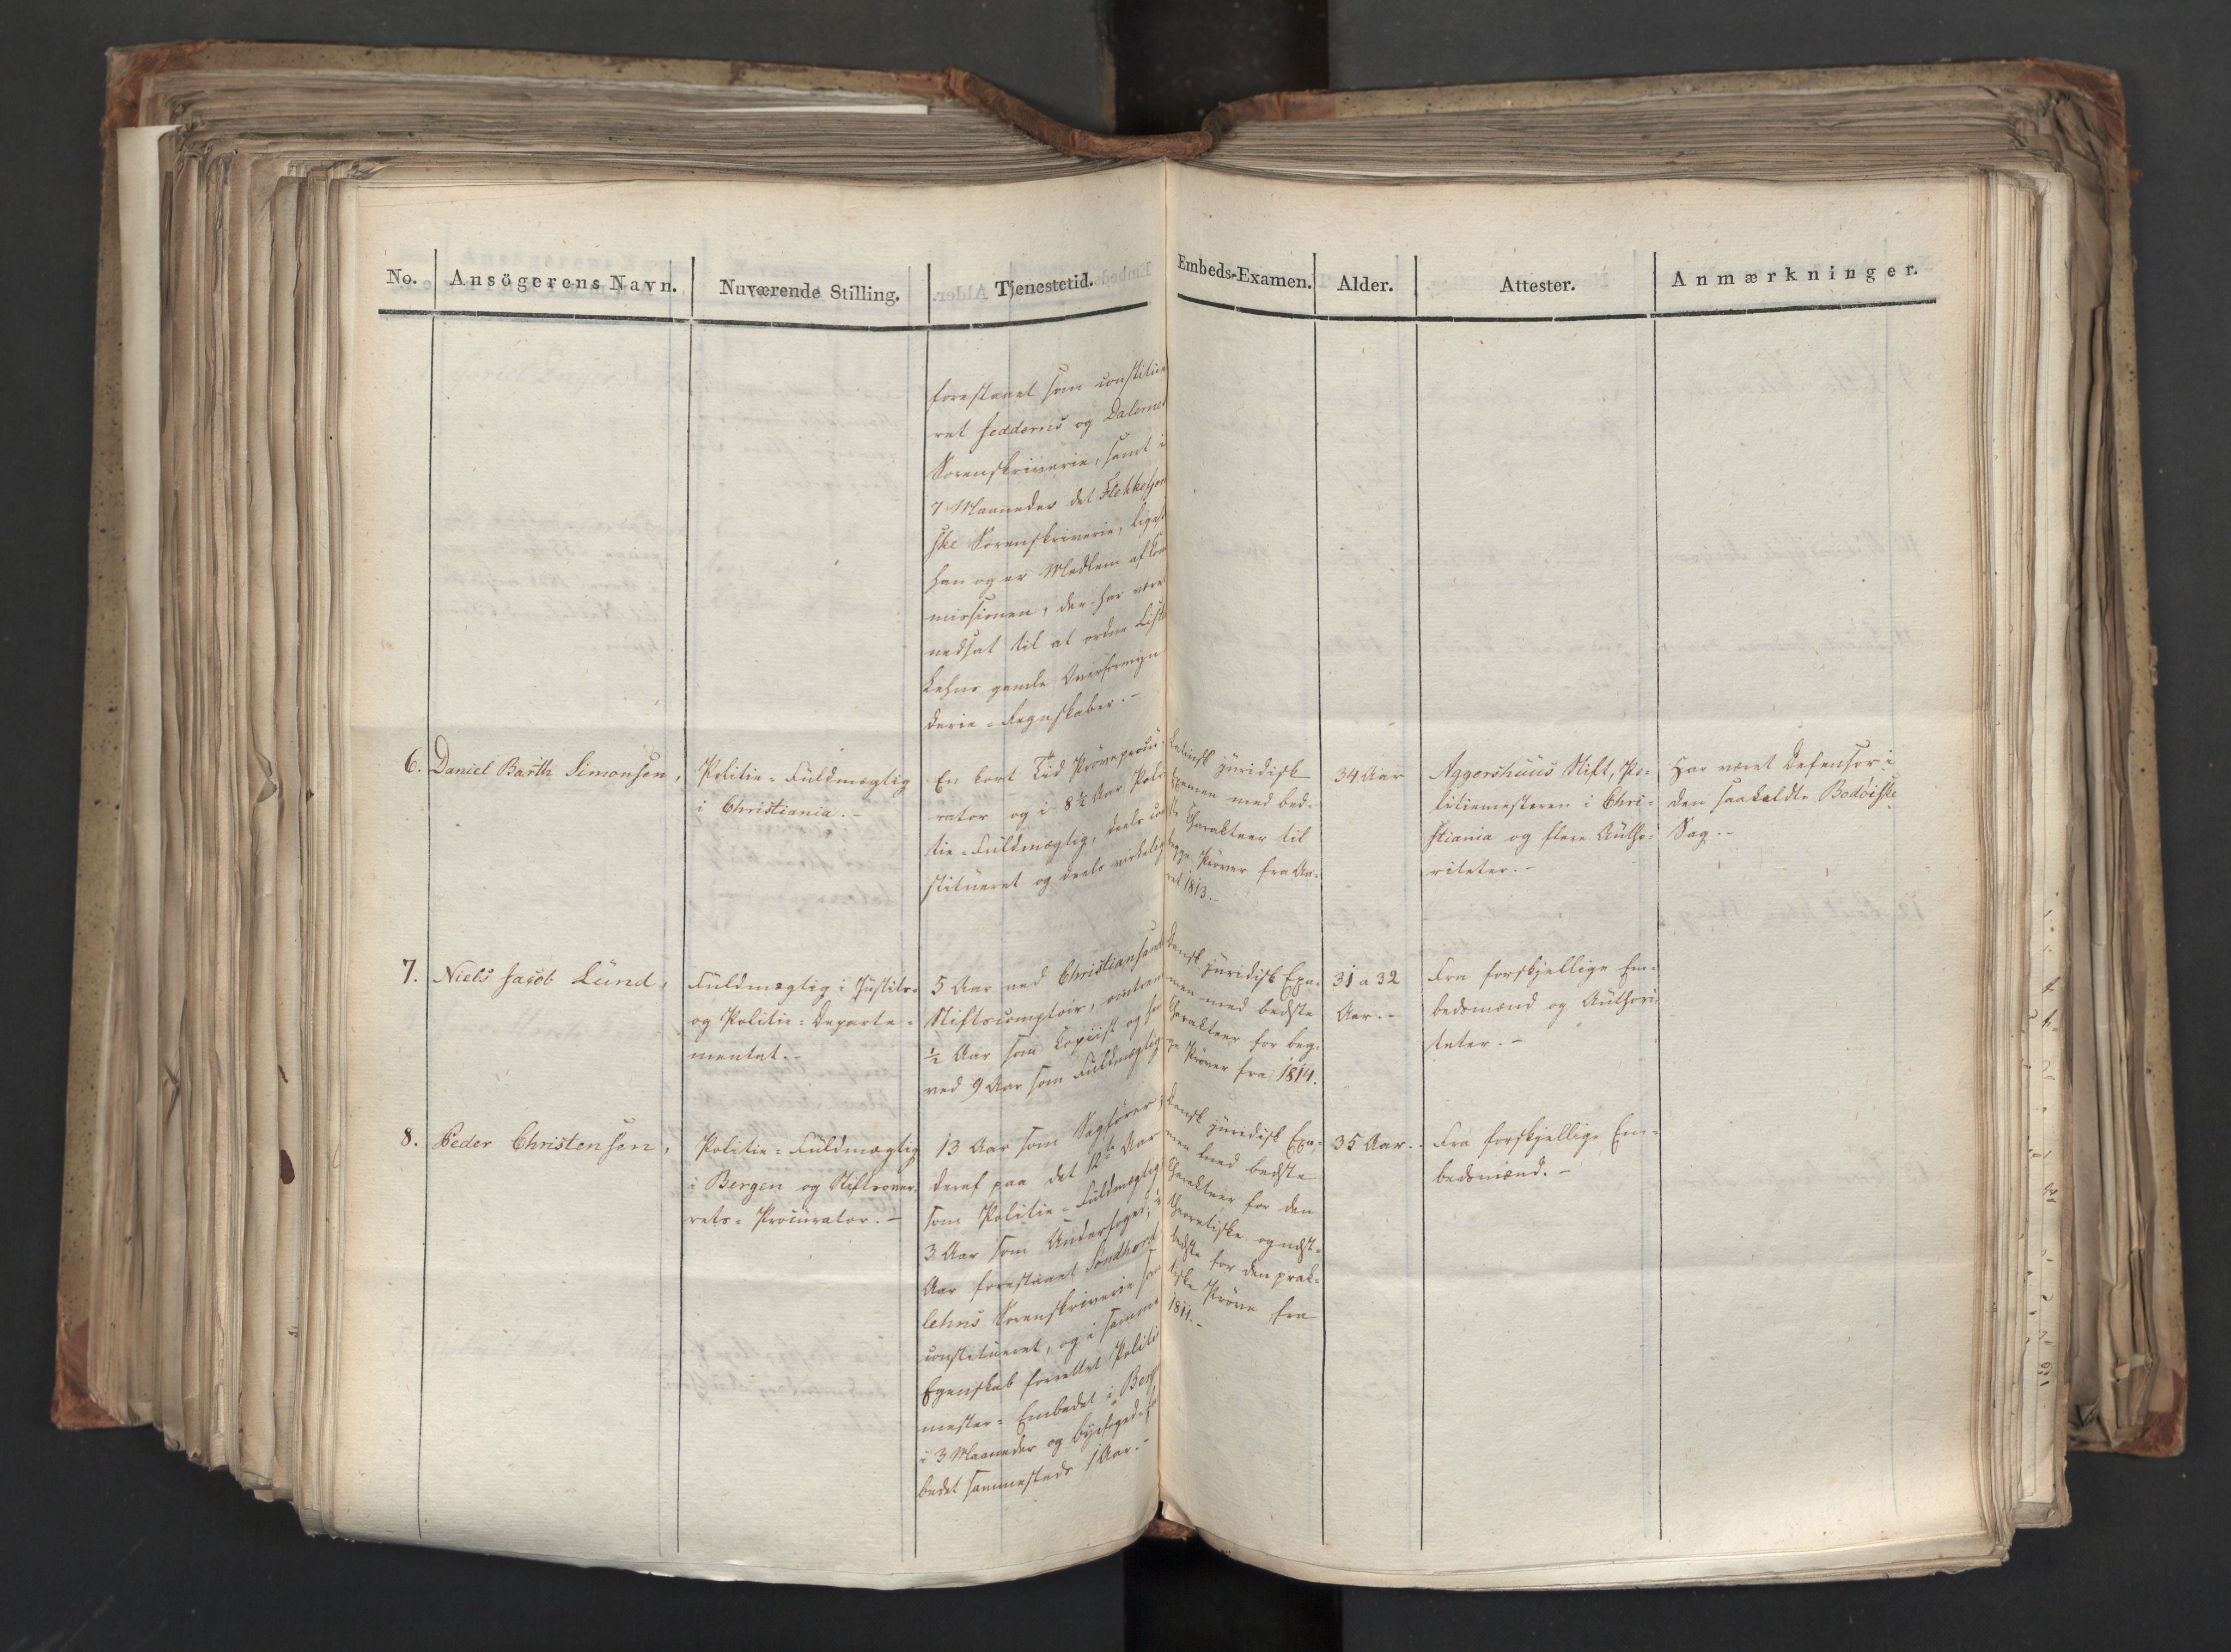 No. Ansögerens Navn. Nuværende Stilling. Tjenestetid. Embeds-Examen. Alder. Attester. Anmærkninger.
forestaaet som constitue
ret Jedderens og Dalernes
Sorenskriverie, samt i
7 Maaneder det Flekkefjor
ske Sorenskriverie, ligesom
han og er Medlem af Com
missionen, der har været
nedsat til at ordne Lister
Lehns gamle Overformyn
derie-Regnskaber.-
6. Daniel Barth Simonsen,
Politie-Fuldmægtig
i Christiania.-
En kort Tid Prøveprocu-
rator og i 8½ Aar Poli
tie-Fuldmægtig, deels con
stitueret og deels virkelig
Latinsk juridisk
Examen med bed-
ste Charakteer til
begge Prøver fra Aa-
ret 1813.-
34 Aar
Aggershuus Stift, Po-
litiemesteren i Chri-
stiania og flere Autho-
riteter.-
Har været Defensor i
den saakaldte Bodøiske
Sag.-
7. Niels Jacob Lund,
Fuldmægtig i Justits-
og Politie-Departe-
mentet.-
5 Aar ved Christiansand
Stiftscomptoir, omtrent
½ Aar som Copiist og her
ved 9 Aar som Fuldmægtig
Dansk juridisk Exa-
men med bedste
Charakteer for beg-
ge Prøver fra 1814.
31 a 32
Aar.-
Fra forskjellige Em-
bedsmænd og Authori-
teter.-
8. Peder Christensen,
Politie-Fuldmægtig
i Bergen og Stiftsover-
rets-Procurator.-
13 Aar som Sagfører,
deraf paa det 12te Aar
som Politie-Fuldmægtig
3 Aar som Underfoged,
Aar forestaaet Søndhord
lehns Sorenskriverie som
constitueret, og i samme
Egenskab forrettet Politi
mester-Embedet i Berg
i 3 Maaneder og Byefoged-
bedet sammesteds 1 Aar.-
Dansk juridisk Exa-
men med bedste
Charakteer for den
theoretiske og næst-
bedste for den prak-
tiske Prøve fra
1811.-
35 Aar.
Fra forskjellige Em-
bedsmænd.-